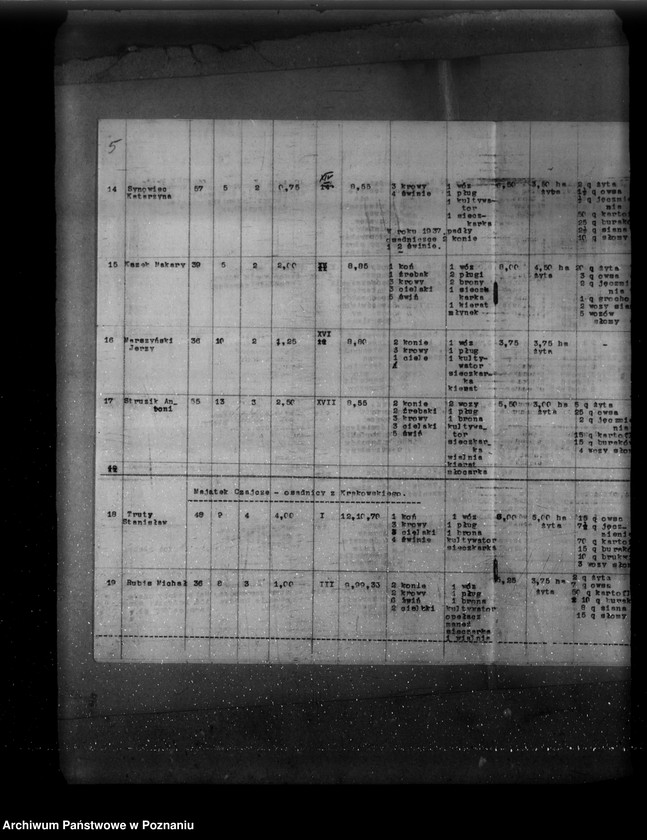 5
14 Synowiec Katarzyna 57 5 2 0,75 8,55 3 krowy 1 wóz 3,50 ha 2 q żyta
4 świnie 1 pług żyta q owsa
1 kultywa- q jęczmie
tor nia
1 siecz- 50 q kartof
karka 25 q burak
W roku 1937 padły q siana
osadniczce 2 konie 10 q słomy
i 2 świnie.
15 Kazek Makary 39 5 2 2,00 8,85 1 koń 1 wóz 8,00 4,50 ha 20 q żyta
1 źrebak 2 pługi żyta 3 q owsa
3 krowy 2 brony 2 q jęczmi
3 cielaki 1 sieczk nia
5 świń karka 1 q grocho
1 kierat 2 wozy sia
młynek 5 wozów
słomy
XVI
16 Marszyński Jerzy 36 10 2 1,25 8,80 2 konie 1 wóz 3,75 3,75 ha -
3 krowy 1 pług żyta
1 ciele 1 kulty-
wator
sieczkar-
ka
kierat
17 Struzik An_ toni 55 13 3 2,50 XVII 8,55 2 konie 2 wozy 5,50 3,00 ha 5 q żyta
2 źrebaki 1 pług żyta 25 q owsa
3 krowy 1 brona 2 q jęczmie
3 cielaki kultywa_ nia
5 świń tor 15 q kartofl
sieczkar_ 15 q buraków
ka 4 wozy słom
wialnia
kierat
młocarka
Majątek Czajcze - osadnicy z Krakowskiego.
18 Truty Stanisław 48 9 4 4,00 I 12,10,70 1 koń 1 wóz 8,00 5,00 ha 15 q owsa
3 krowy 1 pług żyta q jęcz_
cielaki 1 brona mienie
4 świnie kultywator 70 q kartof
sieczkarka 15 q burakó
10 q brukw
3 wozy sło
19 Rubis Michał 36 8 3 1,00 III 9,99,30 2 konie 1 wóz 3,75 ha 2 q żyta
2 krowy 1 pług żyta 7 q owsa
6 świń 1 brona 50 q kartofl
2 cielaki kultywator 10 q burak
opełacz 8 q siana
maneż 15 q słomy
sieczkarka
i wialnia
Archiwum Państwowe w Poznaniu